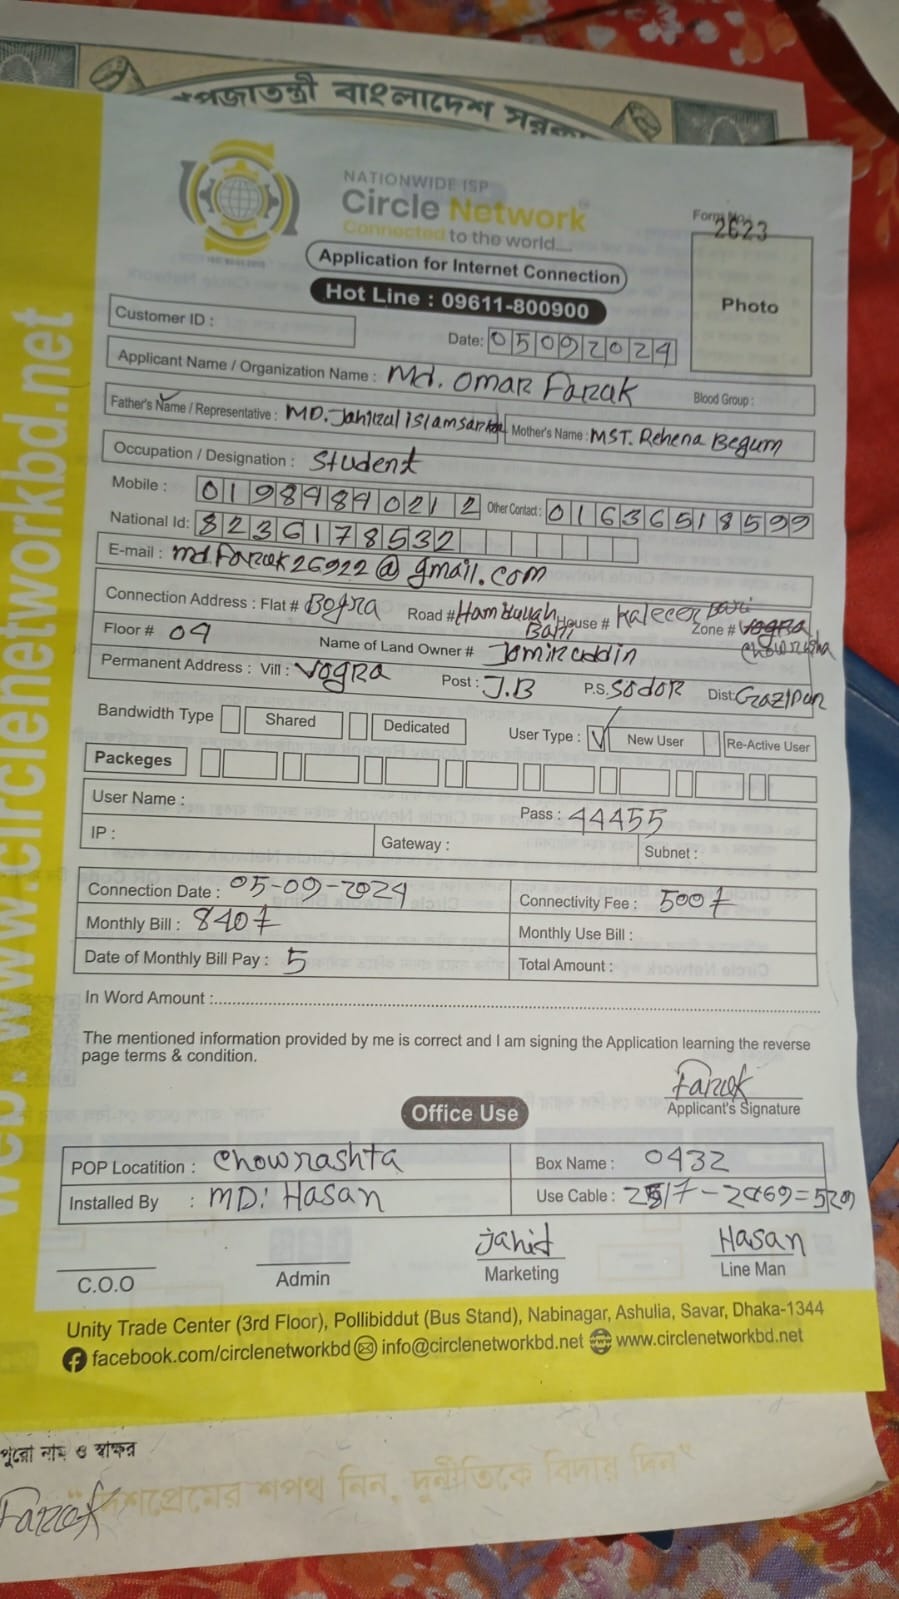 গপ্রজাতন্ত্রী বাংলাদেশ সরকা
NATIONWIDE ISP
Circle Network
Connected to the world....
Form No.:
2623
Application for Internet Connection
Hot Line : 09611-800900
Photo
Customer ID :
Date: 05092024
Applicant Name / Organization Name : Md. Omar Faruk
Blood Group :
Father's Name / Representative : MD. Jahirul islam sarker Mother's Name : MST. Rehena Begum
Occupation / Designation : Student
Mobile : 01984840212 Other Contact : 01636518599
National Id: 8236178532
E-mail : md.Faruk26922@gmail.com
Connection Address : Flat # Bogra Road # Hamidullah Bari House # Kalecer Bari Zone # Chowrasha
Floor # 04 Name of Land Owner # Jamiruddin
Permanent Address : Vill : Vogra Post : J.B P.S. Sodor Dist: Gazipur
Bandwidth Type Shared Dedicated User Type : New User Re-Active User
Packeges
User Name : Pass : 44455
IP : Gateway : Subnet :
Connection Date : 05-09-2024 Connectivity Fee : 500/
Monthly Bill : 840/ Monthly Use Bill :
Date of Monthly Bill Pay : 5 Total Amount :
In Word Amount :
The mentioned information provided by me is correct and I am signing the Application learning the reverse
page terms & condition.
Faruk
Applicant's Signature
Office Use
POP Locatition : Chowrashta Box Name : 0432
Installed By : MD: Hasan Use Cable :
Jahid Hasan
C.O.O Admin Marketing Line Man
Unity Trade Center (3rd Floor), Pollibiddut (Bus Stand), Nabinagar, Ashulia, Savar, Dhaka-1344
facebook.com/circlenetworkbd info@circlenetworkbd.net www.circlenetworkbd.net
web: www.circlenetworkbd.net
পুরো নাম ও স্বাক্ষর
"দেশপ্রেমের শপথ নিন, দুর্নীতিকে বিদায় দিন"
Faruk